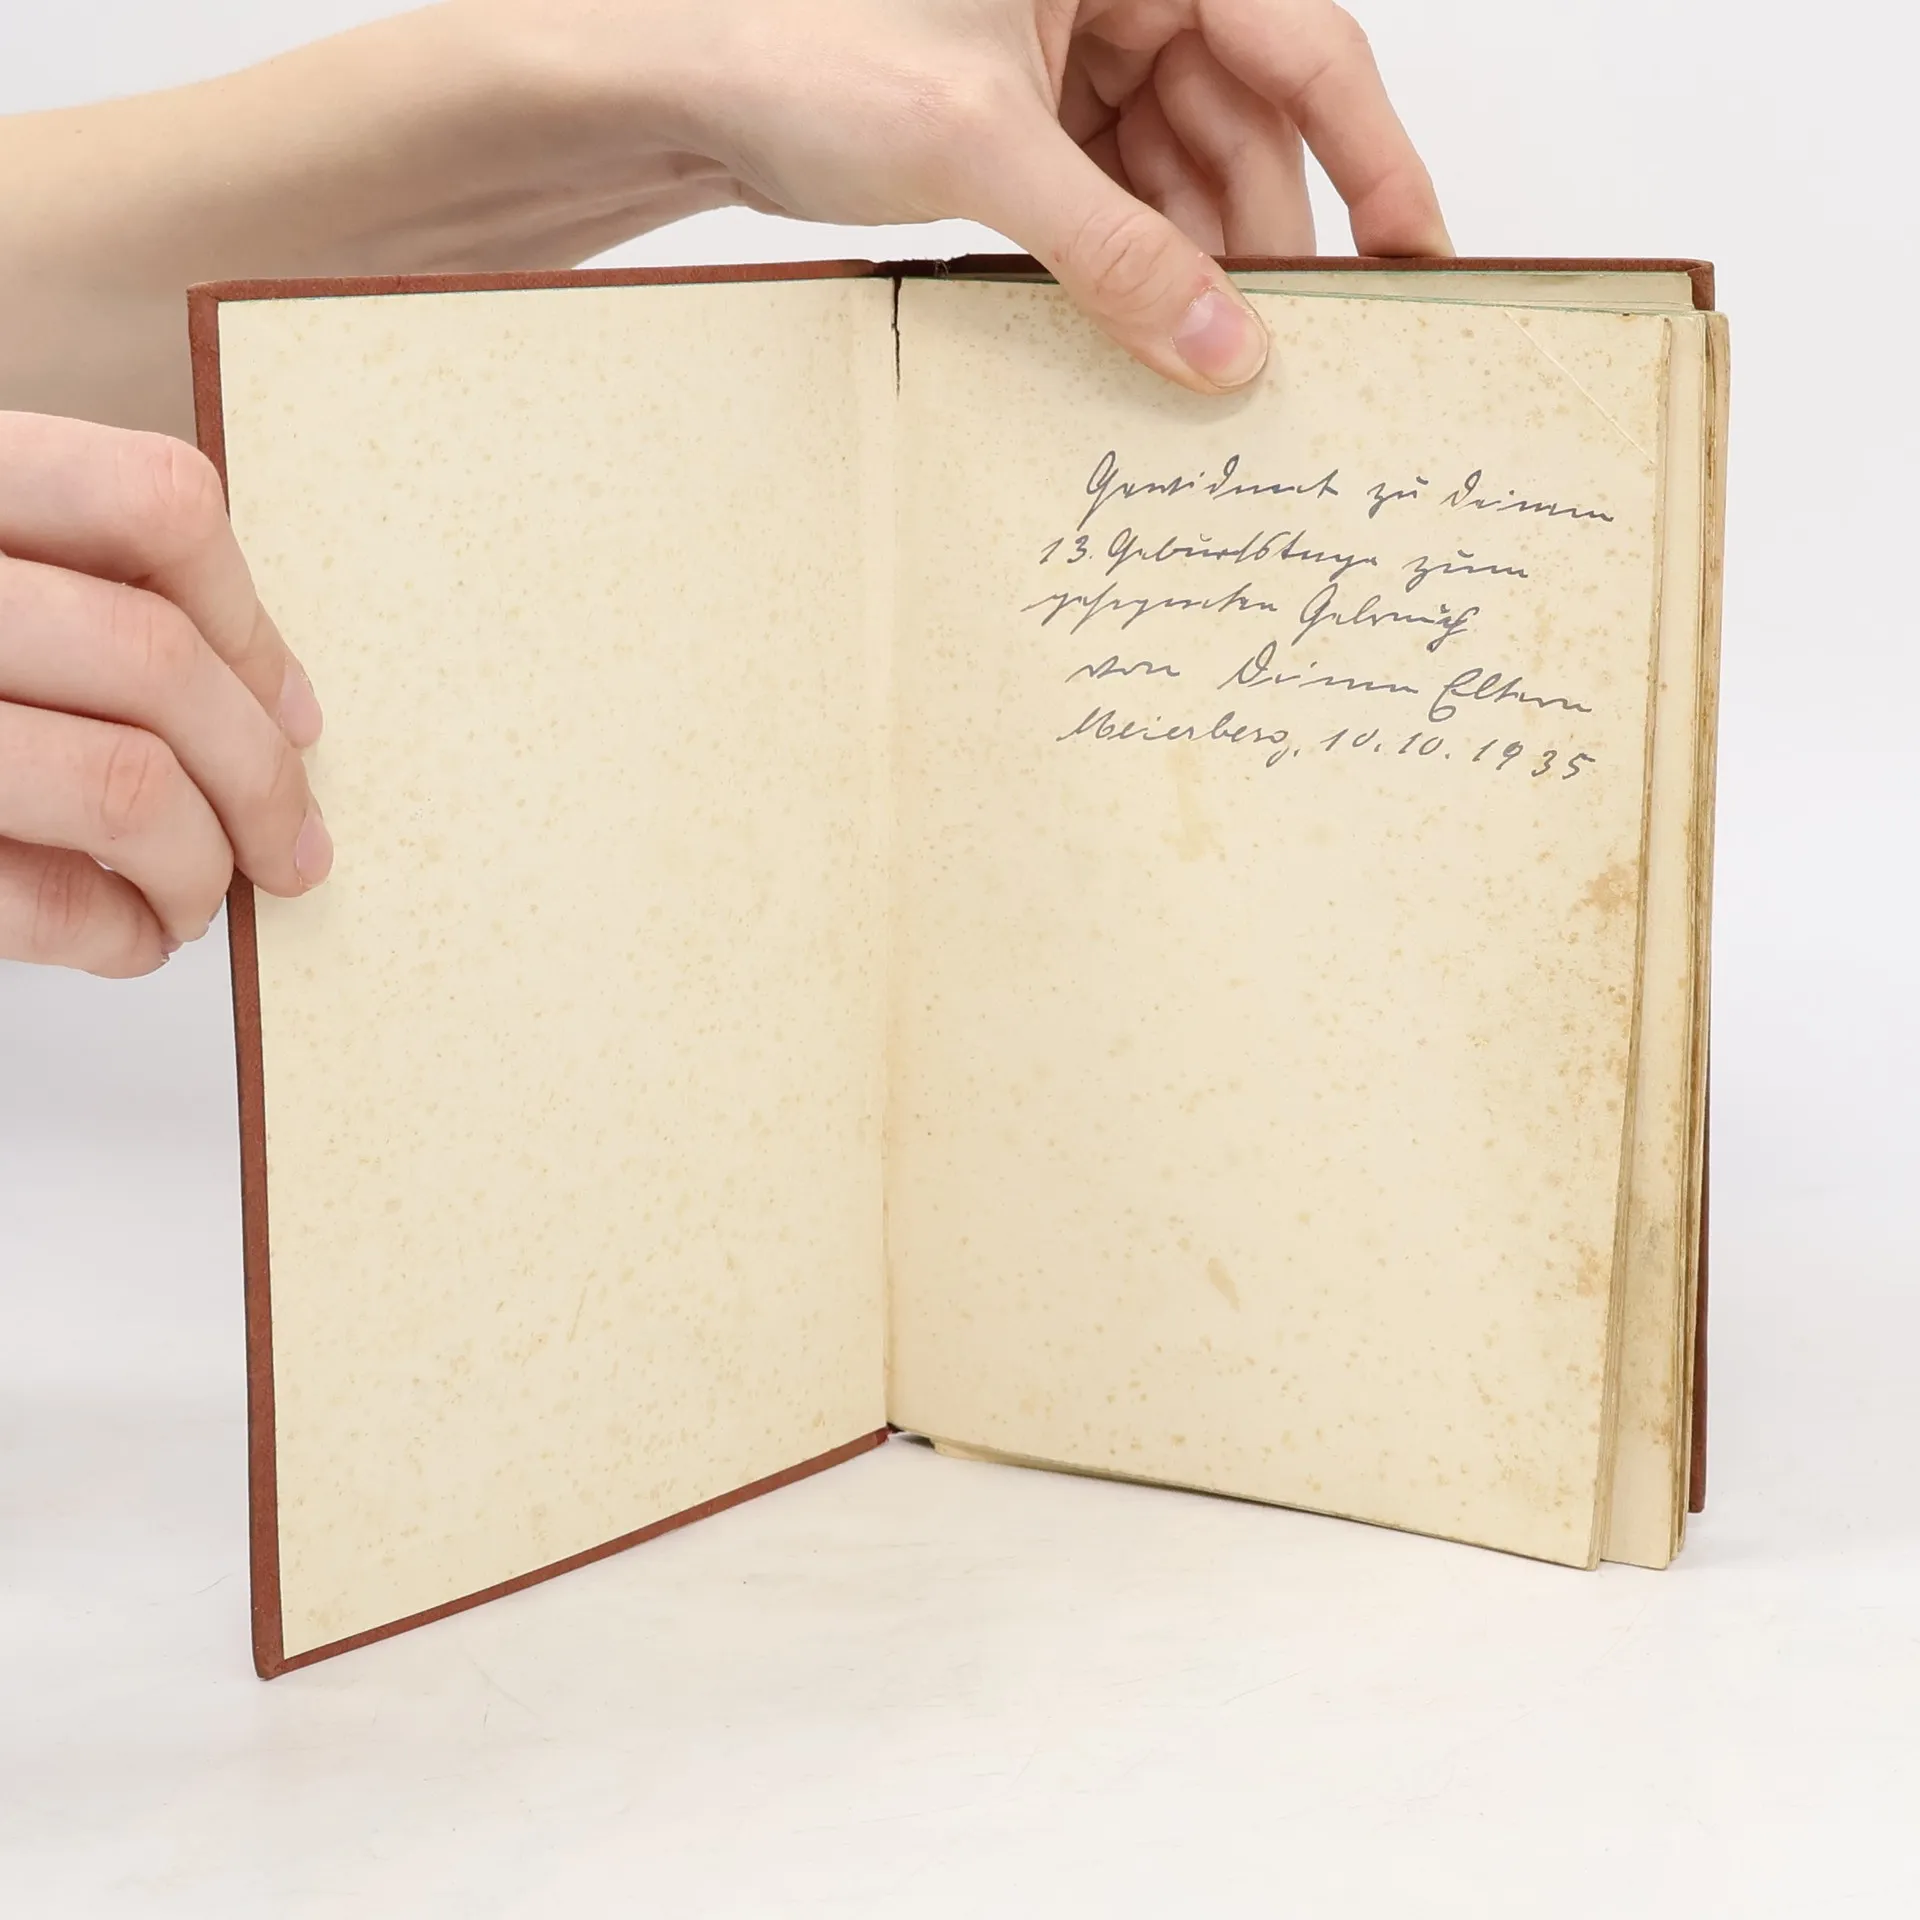 Gewidmet zu Deinem
13. Geburtstage zum
gesegneten Gebrauch
von Deinen Eltern
Meierberg, 10.10.1935